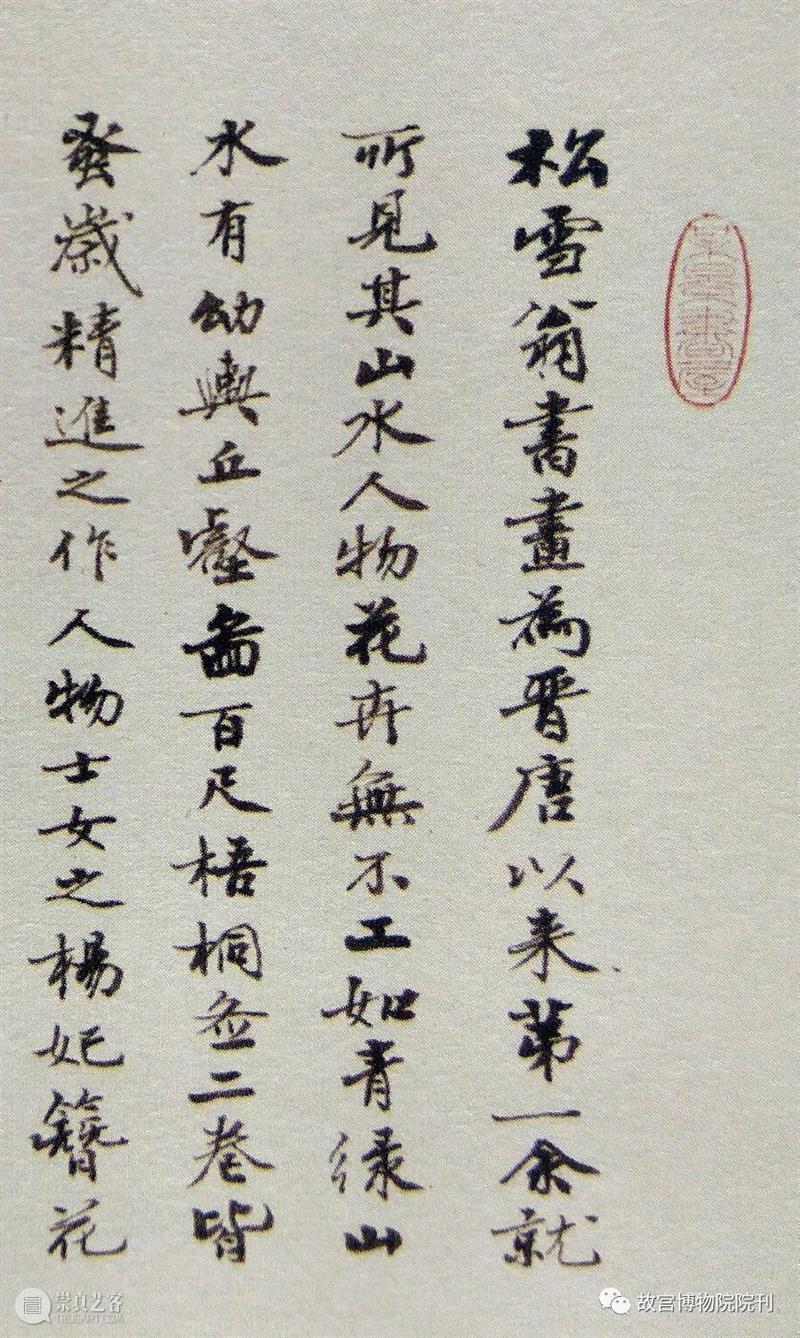 松雪翁書畫為晉唐以来第一余就
所見其山水人物花卉無不工如青绿山
水有幼輿丘壑啚百尺梧桐二卷皆
蚤歲精進之作人物士女之楊妃簪花
崇真艺客
TRUEART.COM
故宫博物院院刊